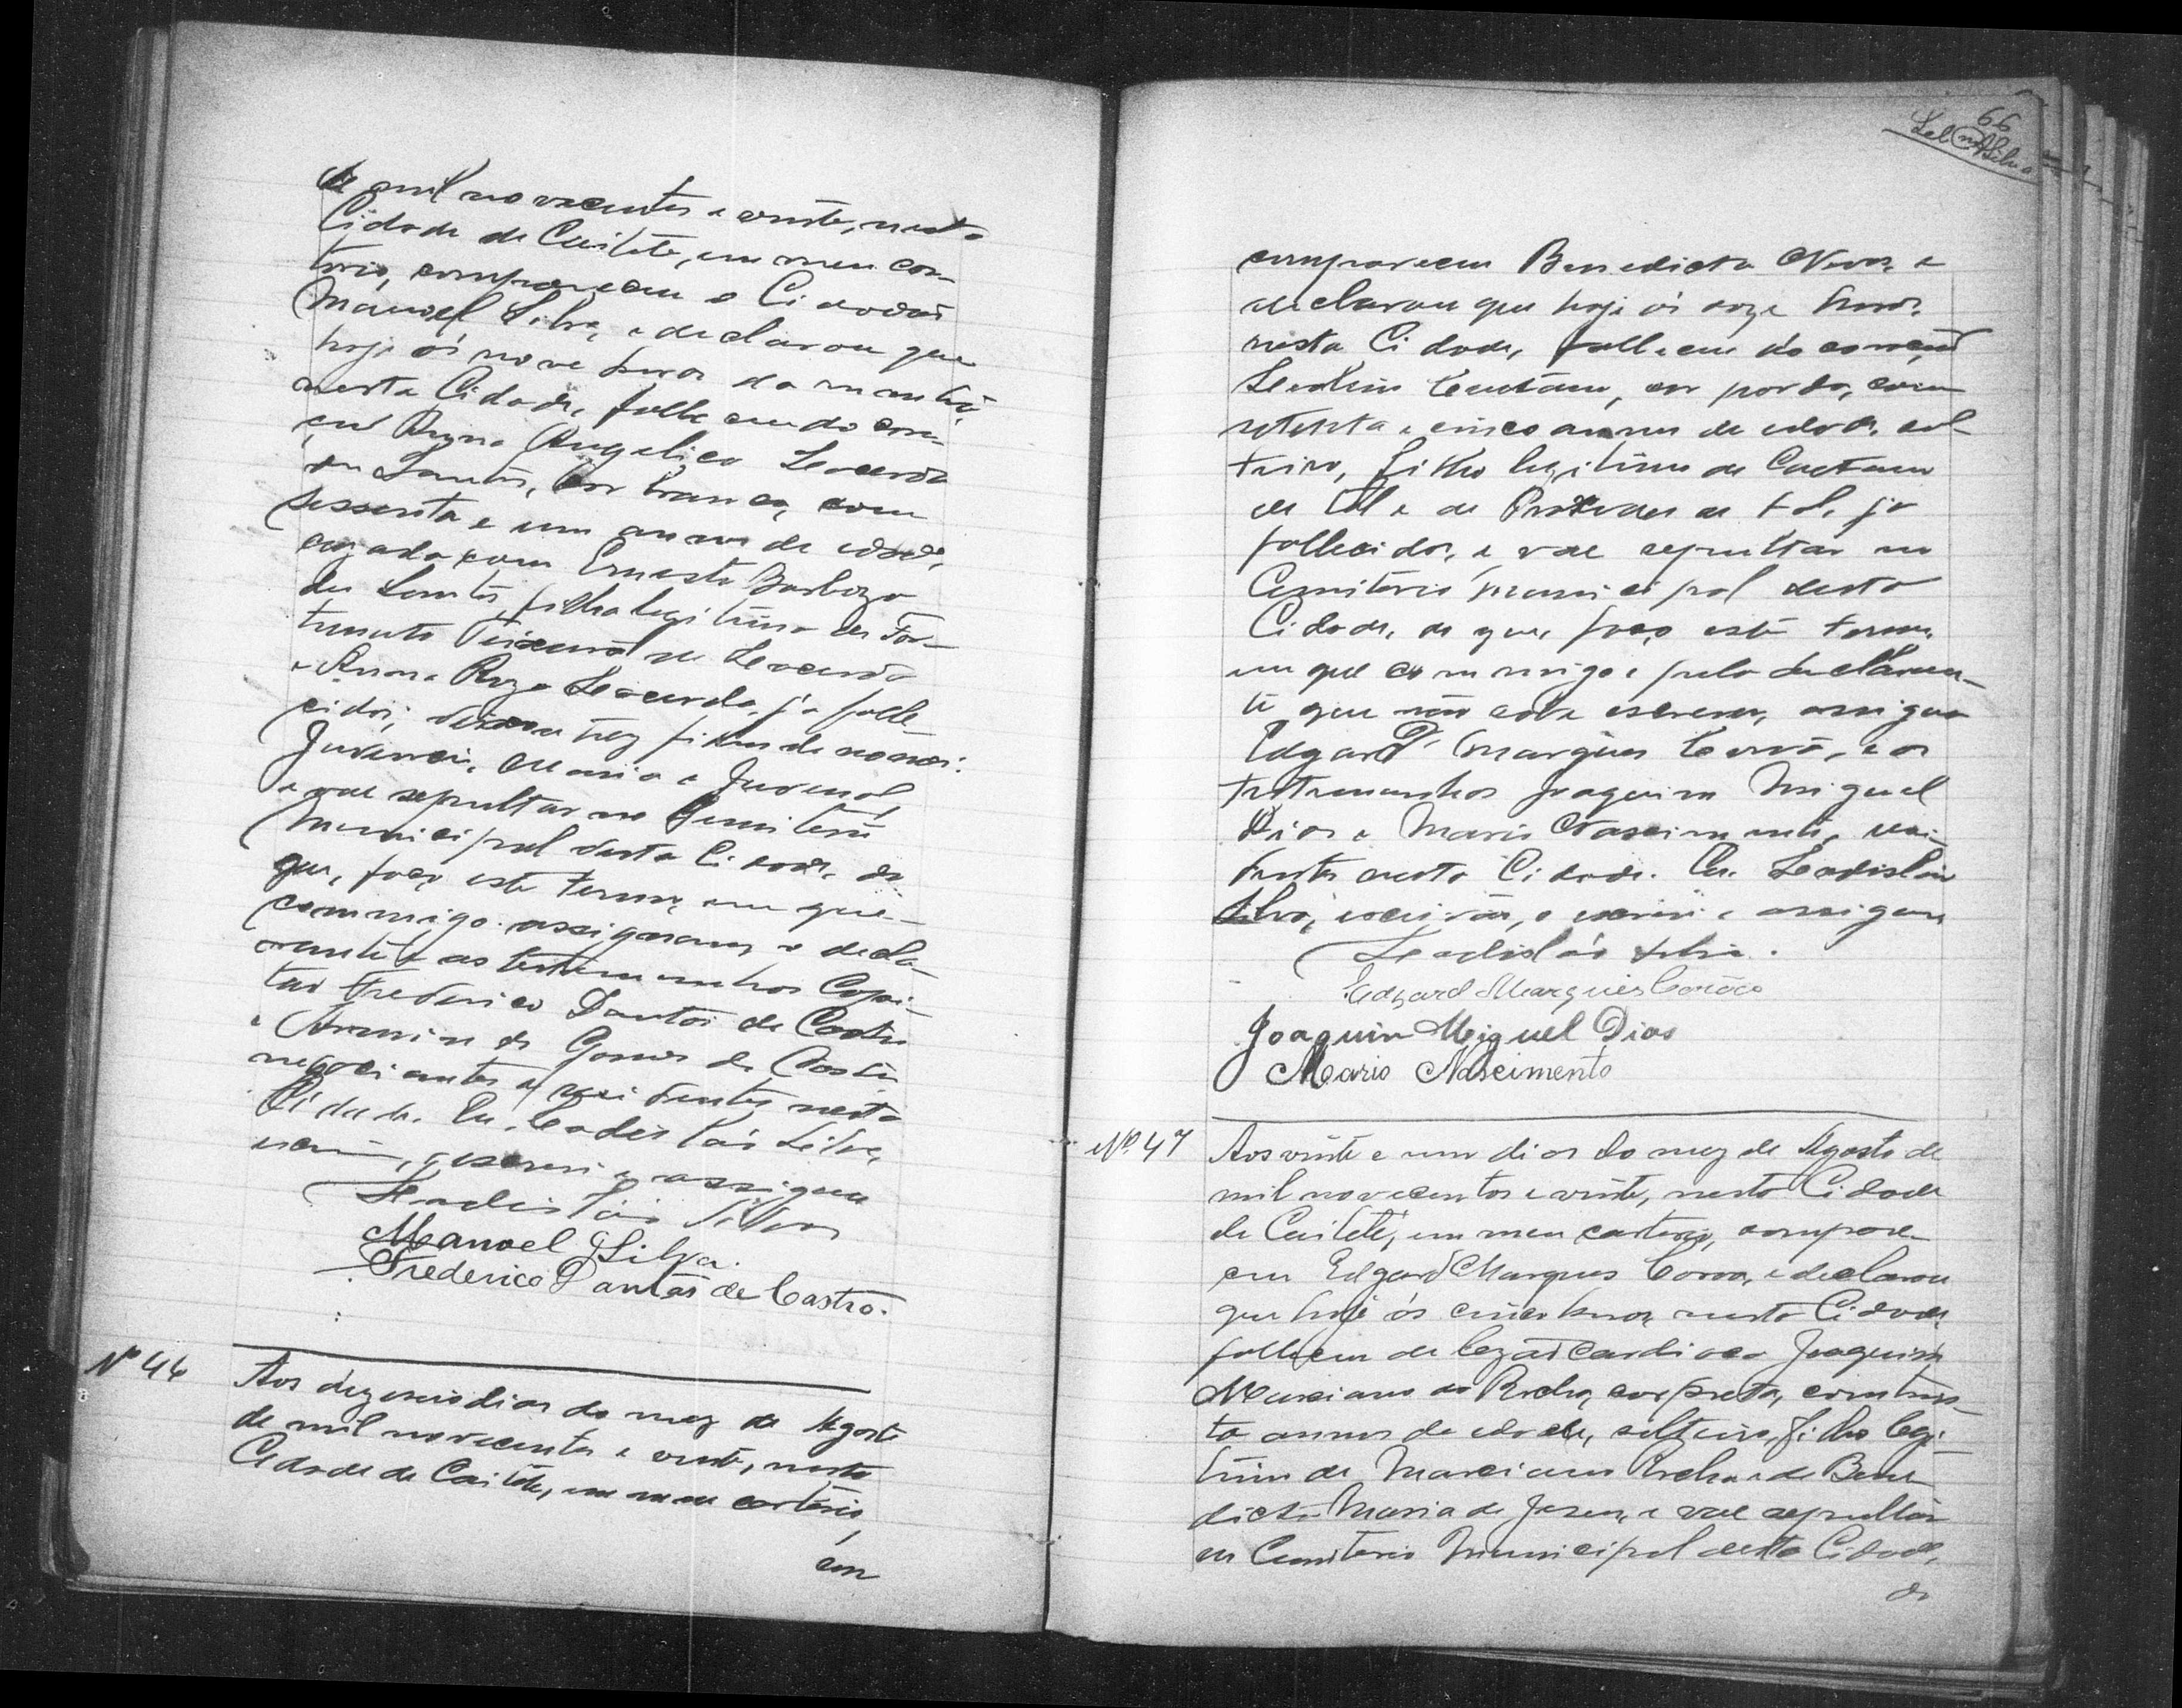 de mil novecentos e vinte, nesta
Cidade de Caitete, em meu car-
torio, compareceu o Cidadão
Manoel Silva, e declarou que
hoje ás nove horas da manhã
nesta Cidade, falleceu do cora-
ção Anna Angelica Lacerda
dos Santos, côr branca, com
sessenta e um annos de edade,
cazada com Ernesto Barboza
dos Santos, filha legitima de For-
tunato Teixeira de Lacerda
e Anna Roza Lacerda, ja falle-
cidos; deixou trez filhos de nomes:
Juvencio, Maria e Juvenal,
e vae sepultar no Cemiterio
Municipal desta Cidade, do
que, faço este termo, em que
commigo assignaram o decla-
rante e as testemunhas Capi-
tão Frederico Dantas de Castro
e Gomes da Costa
negociantes e residentes nesta
Cidade. Eu, Ladisláo Silva,
escrivão, o escrevi e assigno
Ladisláo Silva
Manoel J Silva.
Frederico Dantas de Castro.
Nº 46
Aos dezoseis dias do mez de Agosto
de mil novecentos e vinte, nesta
Cidade de Caitete, em meu cartorio,
com
66
Lad Silva
compareceu Benedicta Neves e
declarou que hoje ás onze horas
nesta Cidade, falleceu do coração
côr parda, com
setenta e cinco annos de edade, sol-
teiro, filho legitimo de Caetano
de tal e de de tal, ja
fallecidos, e vae sepultar no
Cemiterio Municipal desta
Cidade, do que, faço este termo,
em que commigo e pela declaran-
te que não sabe escrever, assigna
Edgard Marques e as
testemunhas Joaquim Miguel
Dias e Mario Nascimento, resi-
dentes nesta Cidade. Eu, Ladisláo
Silva, escrivão, o escrevi e assigno
Ladisláo Silva.
Edgard Marques
Joaquim Miguel Dias
Mario Nascimento
Nº 47
Aos vinte e um dias do mez de Agosto de
mil novecentos e vinte, nesta Cidade
de Caiteté, em meu cartorio, compare-
ceu Edgard Marques e declarou
que hoje ás cinco horas nesta Cidade
falleceu de lezão cardiaca Joaquim
Marciano da Rocha, côr preta, com trin-
ta annos de edade, solteiro, filho legi-
timo de Marciano Rocha e de Bene-
dicta Maria de Jesus, e vae sepultar
no Cemiterio Municipal desta Cidade,
do